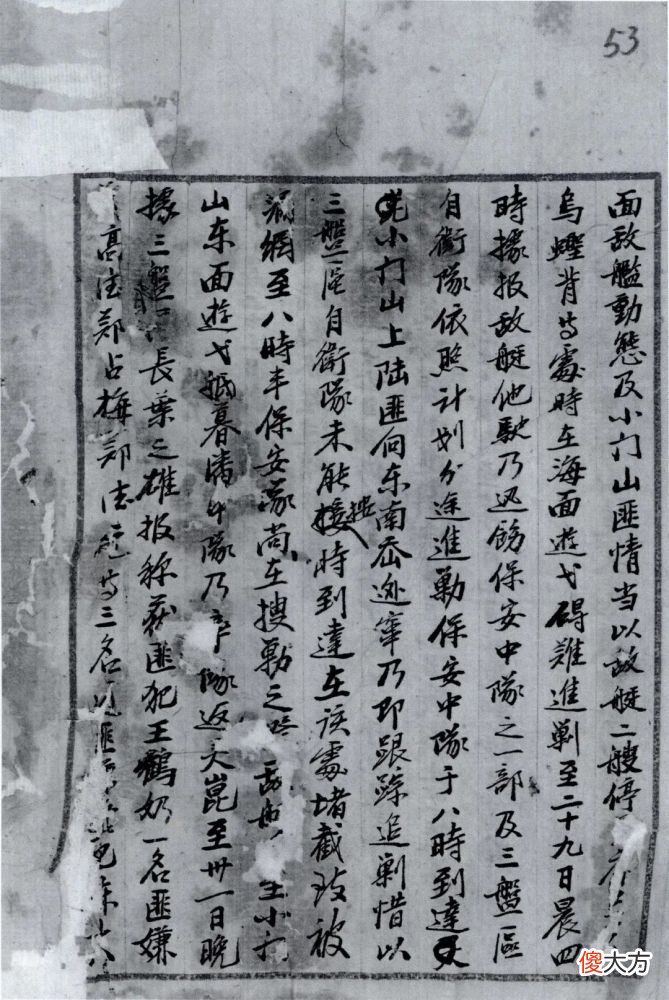 53
面敌艦動态及小门山匪情当以敌艇二艘停
乌蠳背等處時在海面遊弋碍難進剿至二十九日晨四
時據报敌艇他駛乃迅飭保安中隊之一部及三盤區
自衛隊依照计划分途進勦保安中隊于八時到達
小门山上陆匪向东南岙逃竄乃即跟踪追剿惜以
三盤區自衛隊未能按時到達在该處堵截致被
漏網至八時半保安隊尚在搜勦之時
山东面遊弋抵暮潘中隊乃率隊返大崑至卅一日晚
據三盤 長葉之雄报称获匪犯王鶴奶一名匪嫌
高法郑占梅郑法 等三名
傻大方